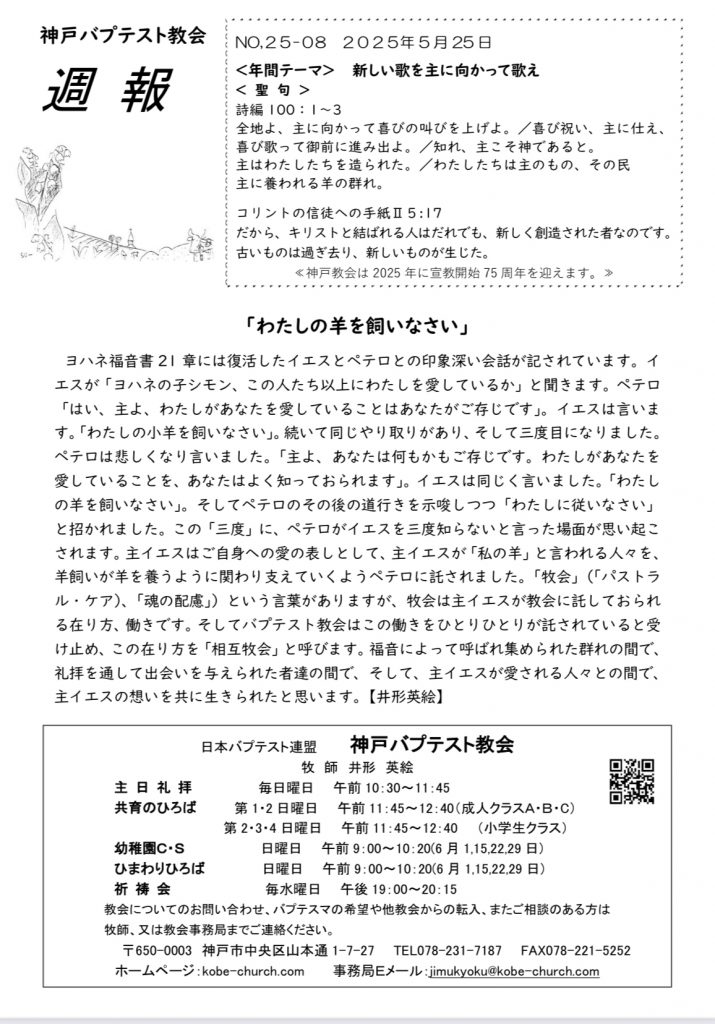 神戸バプテスト教会
週 報
NO,25-08 2025年5月25日
<年間テーマ> 新しい歌を主に向かって歌え
< 聖 句 >
詩編 100:1~3
全地よ、主に向かって喜びの叫びを上げよ。/喜び祝い、主に仕え、
喜び歌って御前に進み出よ。/知れ、主こそ神であると。
主はわたしたちを造られた。/わたしたちは主のもの、その民
主に養われる羊の群れ。
コリントの信徒への手紙Ⅱ 5:17
だから、キリストと結ばれる人はだれでも、新しく創造された者なのです。
古いものは過ぎ去り、新しいものが生じた。
≪神戸教会は 2025 年に宣教開始 75 周年を迎えます。≫
「わたしの羊を飼いなさい」
ヨハネ福音書 21 章には復活したイエスとペテロとの印象深い会話が記されています。イ
エスが「ヨハネの子シモン、この人たち以上にわたしを愛しているか」と聞きます。ペテロ
「はい、主よ、わたしがあなたを愛していることはあなたがご存じです」。イエスは言いま
す。「わたしの小羊を飼いなさい」。続いて同じやり取りがあり、そして三度目になりました。
ペテロは悲しくなり言いました。「主よ、あなたは何もかもご存じです。わたしがあなたを
愛していることを、あなたはよく知っておられます」。イエスは同じく言いました。「わたし
の羊を飼いなさい」。そしてペテロのその後の道行きを示唆しつつ「わたしに従いなさい」
と招かれました。この「三度」に、ペテロがイエスを三度知らないと言った場面が思い起こ
されます。主イエスはご自身への愛の表しとして、主イエスが「私の羊」と言われる人々を、
羊飼いが羊を養うように関わり支えていくようペテロに託されました。「牧会」(「パストラ
ル・ケア)、「魂の配慮」)という言葉がありますが、牧会は主イエスが教会に託しておられ
る在り方、働きです。そしてバプテスト教会はこの働きをひとりひとりが託されていると受
け止め、この在り方を「相互牧会」と呼びます。福音によって呼ばれ集められた群れの間で、
礼拝を通して出会いを与えられた者達の間で、そして、主イエスが愛される人々との間で、
主イエスの想いを共に生きられたと思います。【井形英絵】
日本バプテスト連盟 神戸バプテスト教会
牧 師 井形 英絵
主 日 礼 拝 毎日曜日 午前 10:30~11:45
共育のひろば 第 1・2 日曜日 午前 11:45~12:40(成人クラスA・B・C)
第 2・3・4 日曜日 午前 11:45~12:40 (小学生クラス)
幼稚園C・S 日曜日 午前 9:00~10:20(6 月 1,15,22,29 日)
ひまわりひろば 日曜日 午前 9:00~10:20(6 月 1,15,22,29 日)
祈 祷 会 毎水曜日 午後 19:00~20:15
教会についてのお問い合わせ、バプテスマの希望や他教会からの転入、またご相談のある方は
牧師、又は教会事務局までご連絡ください。
〒650-0003 神戸市中央区山本通 1-7-27 TEL078-231-7187 FAX078-221-5252
ホームページ:kobe-church.com 事務局Eメール:jimukyoku@kobe-church.com